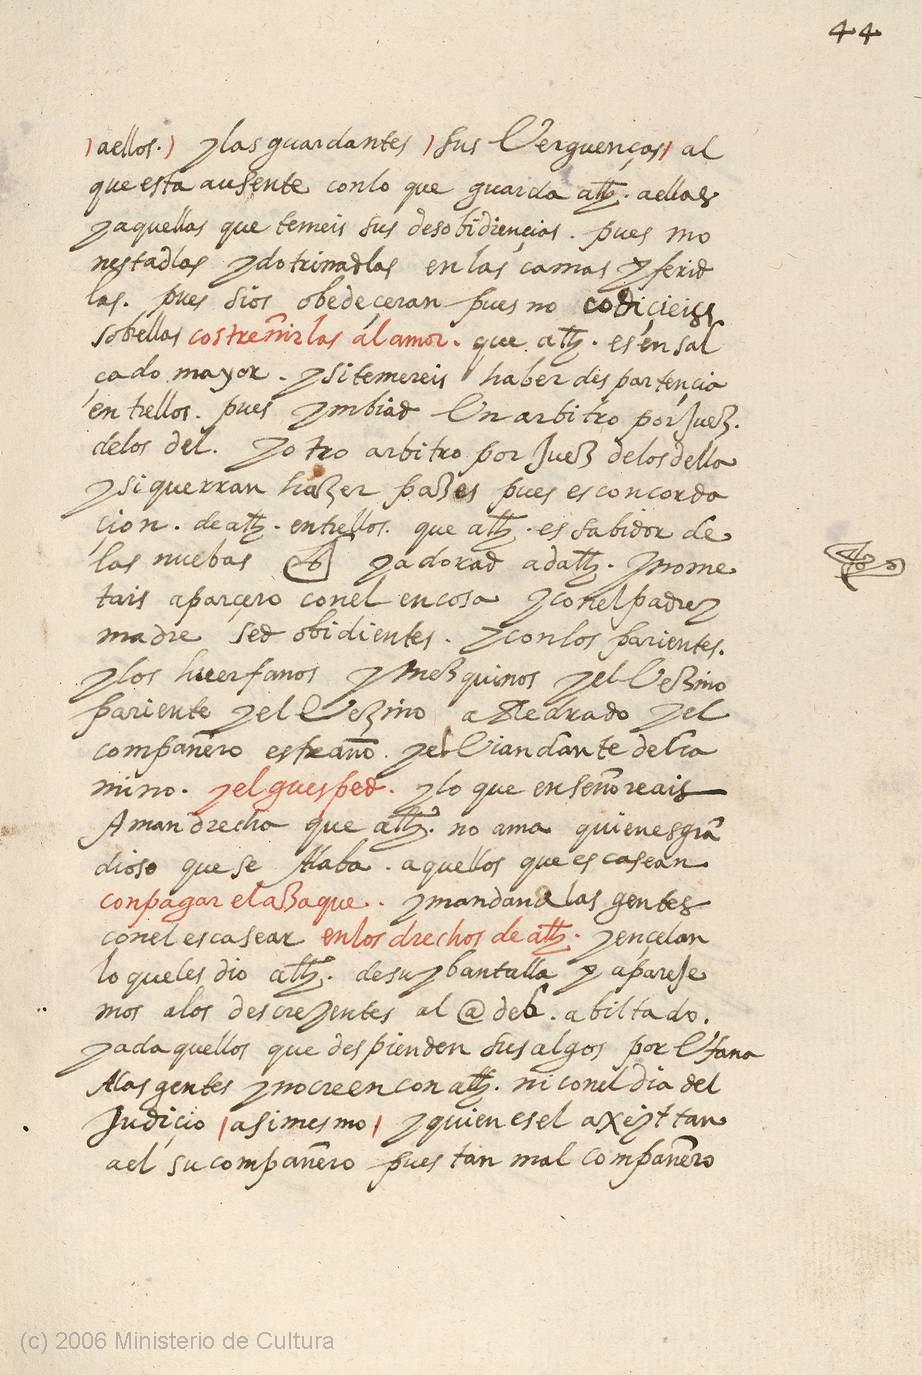 44
aellos. y las guardantes sus Verguenças al
que esta ausente con lo que guarda allh. a ellas
y aquellas que temeis sus desobidiençias. pues mo
nestadlas y dotrinadlas en las camas y ferid
las. pues si os obedeçeran pues no codiçieis
sobellas costreñirlas al amor. que allh. es ensal
çado mayor. y si temereis haber despartençia
entrellos. pues ymbiad Un arbitro por Juez.
de los del. y otro arbitro por Juez de los della
y si querran hazer pazes pues es concorda
çion. de allh. entrellos. que allh. es sabidor de
las nuebas y adorad ad allh. y no me
tais aparçero con el en cosa y con el padre y
madre sed obidientes. y con los parientes.
y los huerfanos y mezquinos y el Vezino
pariente y el Vezino aRedrado y el
compañero estraño. y el Viandante del ca
mino. y el guesped. y lo que enseñoreais
A man drecha que allh. no ama quien es gra
dioso que se Alaba. aquellos que escasean
con pagar el azaque. y mandan a las gentes
con el escasear en los drechos de allh. y ençelan
lo que les dio allh. de su y bantalla y apareje
mos a los descreyentes al @deb. abiltado.
y ad aquellos que despienden sus algos por Ufana
A las gentes y no creen con allh. ni con el dia del
Judiçio asimesmo y quien es el axeyttan
a el su compañero pues tan mal compañero
(c) 2006 Ministerio de Cultura